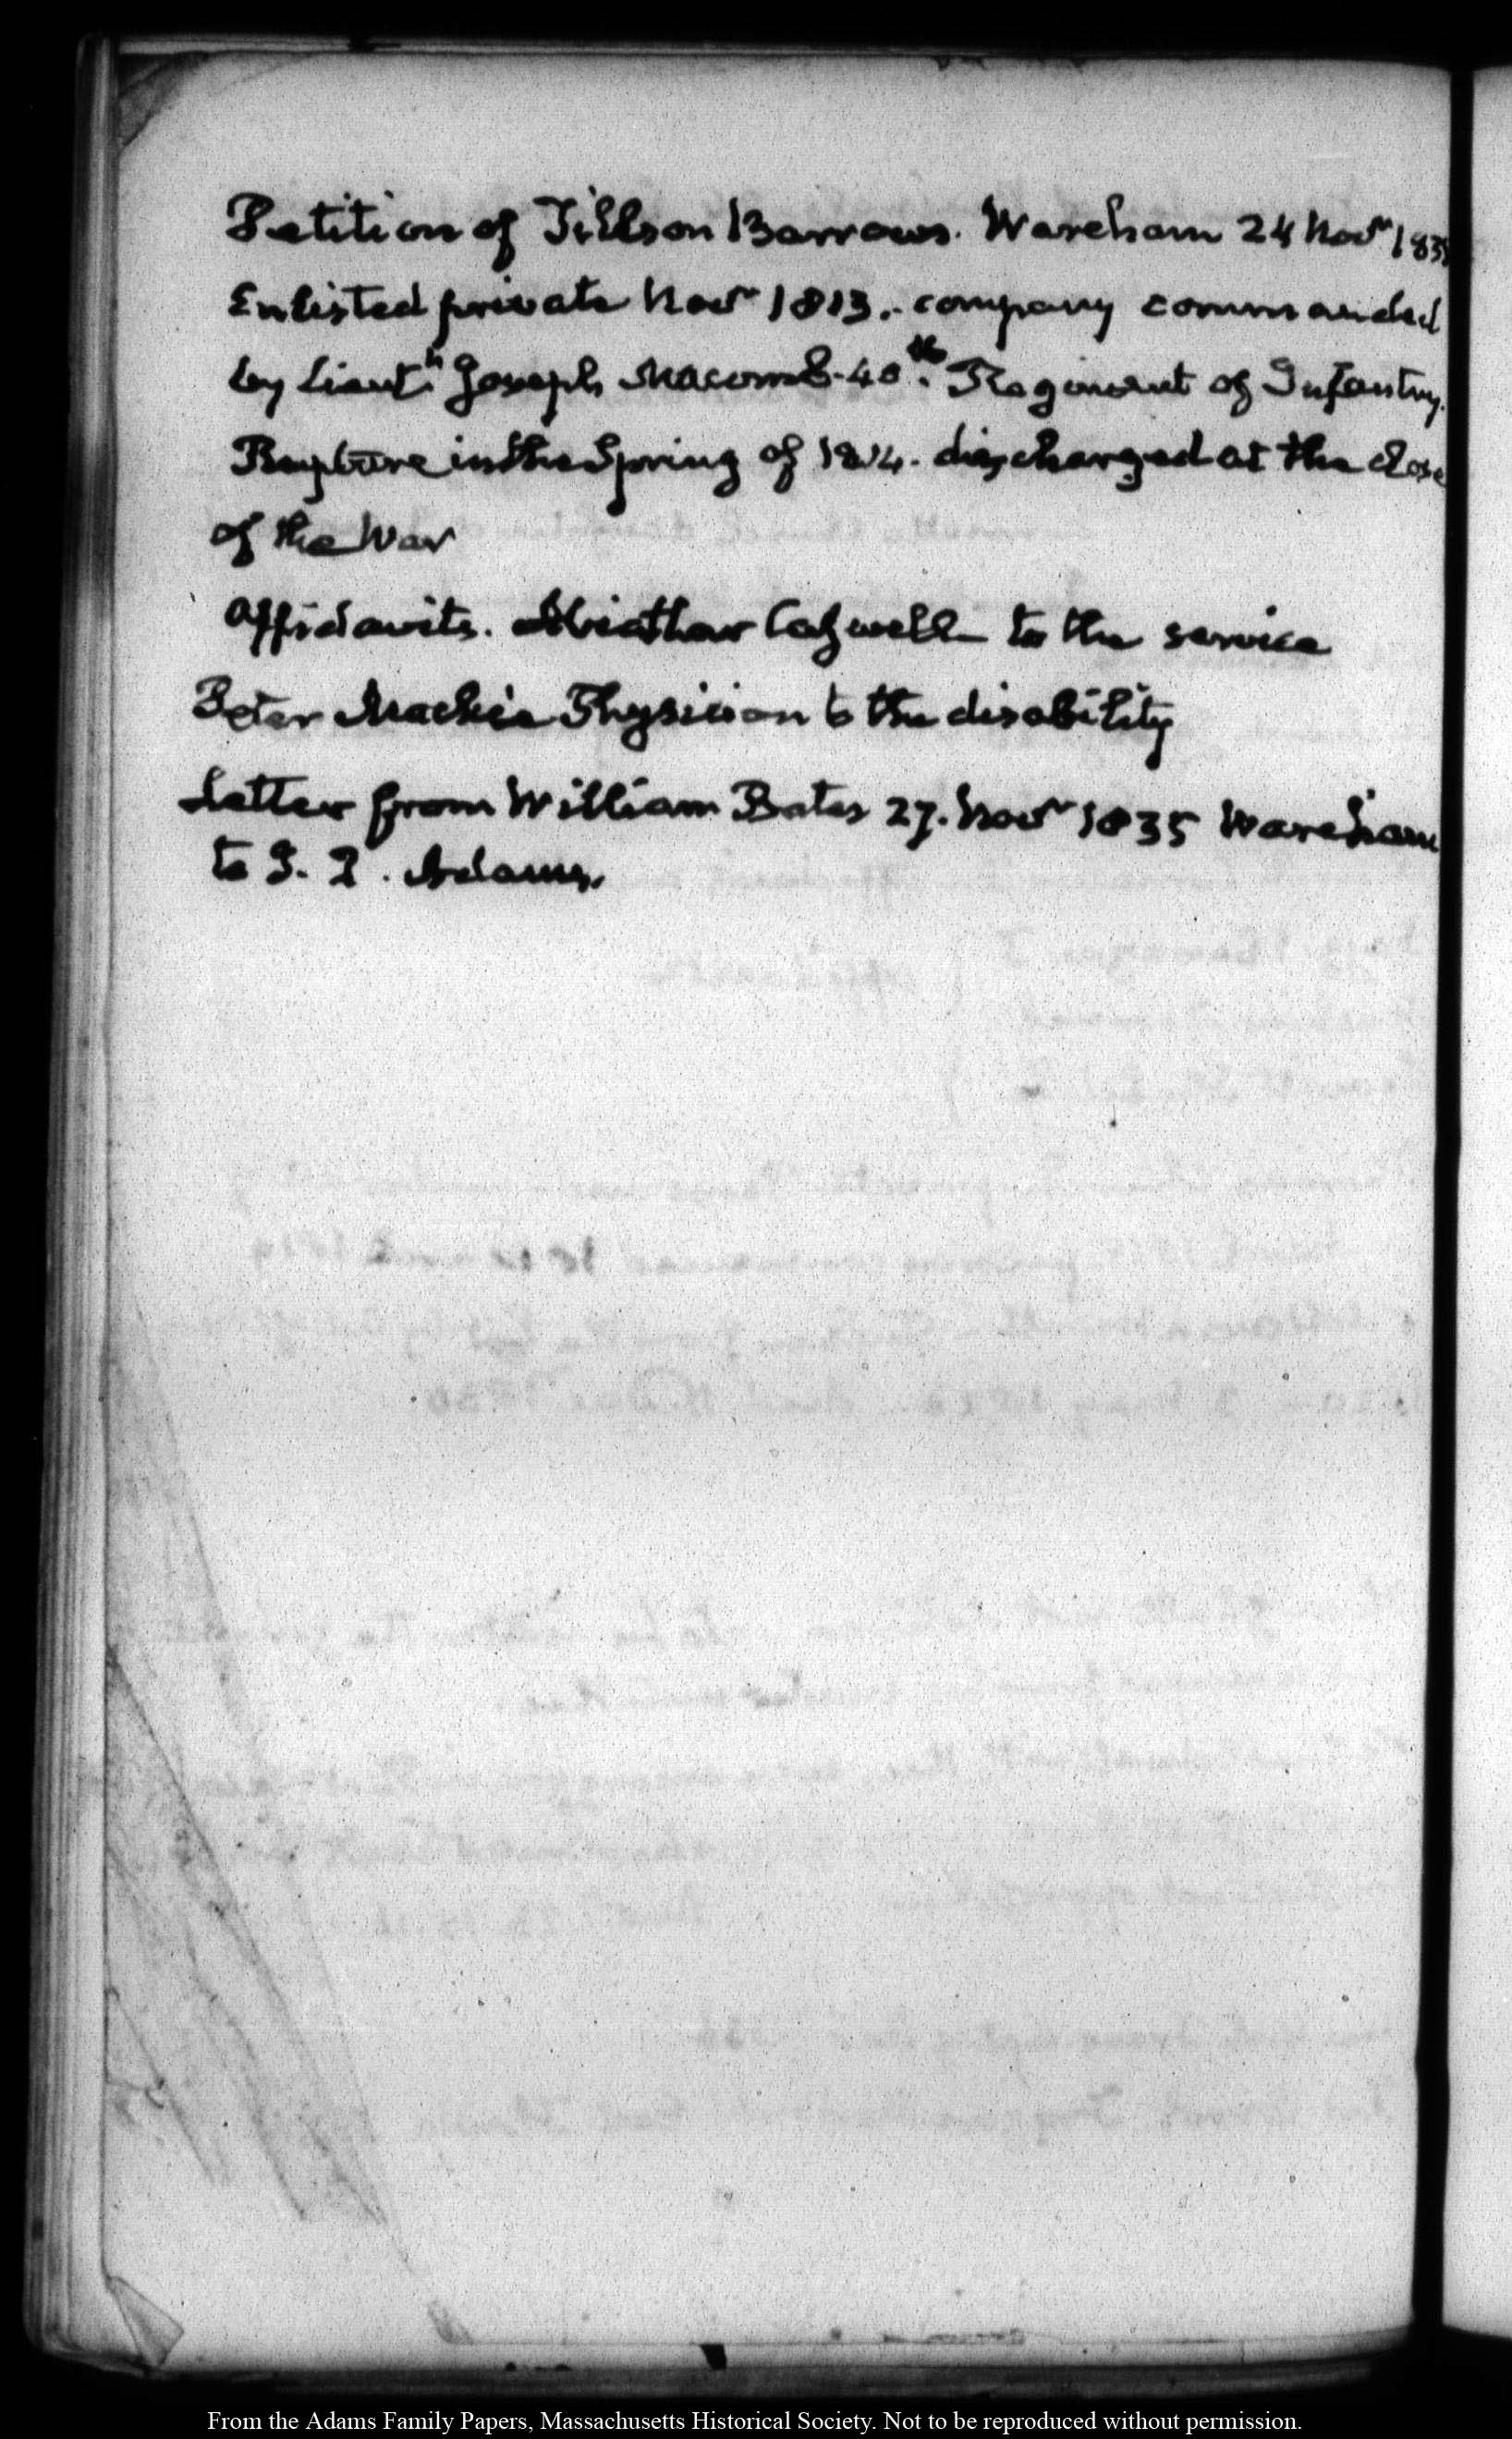 Petition of Tillson Barrows. Wareham 24 Novr 183
Enlisted private Novr 1813. company commanded
by Lieutt Joseph Macomb 40th. Regiment of Infantry.
Rupture in the Spring of 1814. discharged at the close
of the War
Affidavits. Abiathar to the service
Peter Mackie Physician to the disability
Letter from William Bates 27. Novr 1835 Wareham
to J. Q. Adams.
From the Adams Family Papers, Massachusetts Historical Society. Not to be reproduced without permission.